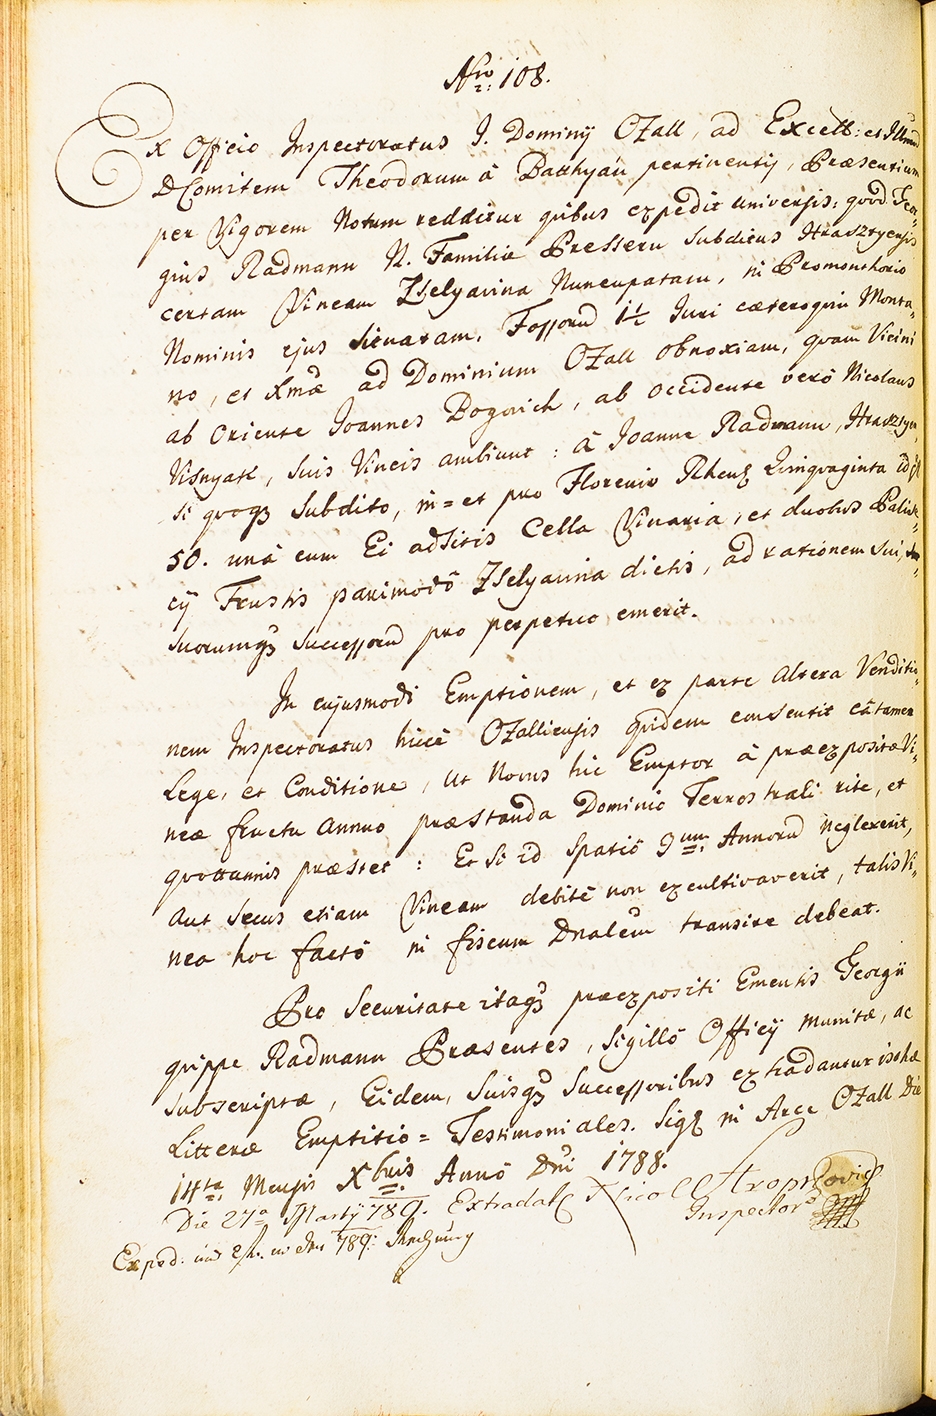 Nro 108.
Ex Officio Inspectoratus I. Dominij Ozall, ad Excell: et Illmum
D Comitem Theodorum á Batthyán pertinentis, Præsentium
per Vigorem Notum redditur quibus expedit universis: quod Geor-
gius Radmann N. Familiæ Presseru Subditus Hrasztyensis
certam Vineam Zselyavina Nuncupatam, in Promonthorio
Nominis ejus situatam, Fossorum 1½ Juri cæteroquin Monta-
no, et Xmæ ad Dominium Ozall obnoxiam, quam Vicini
ab Oriente Joannes Bogovich, ab Occidente verò Nicolaus
Visnyak, suis Vineis ambiunt: â Joanne Radmann, Hrasztyen-
si quoq3 Subdito, in = et pro Florenis Rhen. Quinquaginta id est
50. unà cum Ei adsitis Cella Vinaria, et duobus Palisti-
cÿ Frustis parimodô Zselyavina dictis, ad rationem sui,
suorumq3 Successorum pro perpetuo emerit.
In cujusmodi Emptionem, et ex parte altera Venditio-
nem Inspectoratus hicce Ozalliensis quidem consentit eâtamen
Lege, et Conditione, ut Novus hic Emptor â præexpositæ Vi-
neæ fructu annuo præstanda Dominio Terrestrali rite, et
quottannis præstet: Et si id spatiô 3um Annorum neglexerit,
aut secus etiam Vineam debitè non excultivaverit, talis Vi-
nea hoc factô in fiscum Dnalem transire debeat.
Pro Securitate itaq3 præexpositi Ementis Georgii
quippe Radmann Præsentes, Sigillô Officÿ munitæ, ac
subscriptæ, Eidem, Suisq3 Successoribus extradantur isthæ
Litteræ Emptitio = Testimoniales. Sig. in Arce Ozall Die
14ta Mensis Xbris Annô Dni 1788.
Die 27a Martÿ 789. Extradat. Nicol
Inspector
Exped.